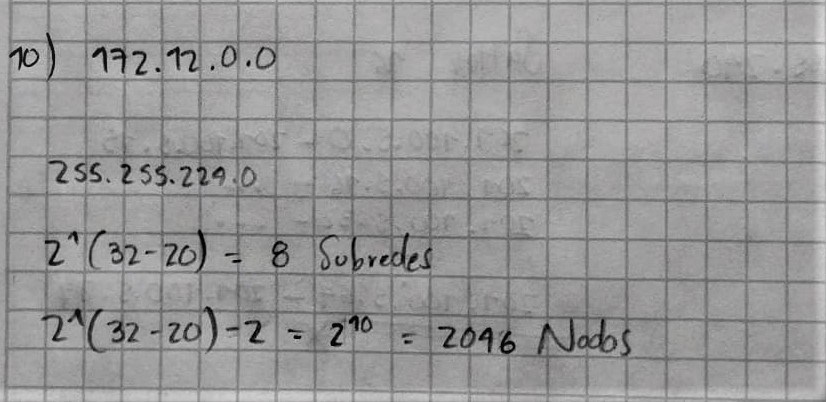 10) 172.12.0.0
255.255.224.0
2^(32-20) = 8 Subredes
2^(32-20)-2 = 2^10 = 2046 Nodos